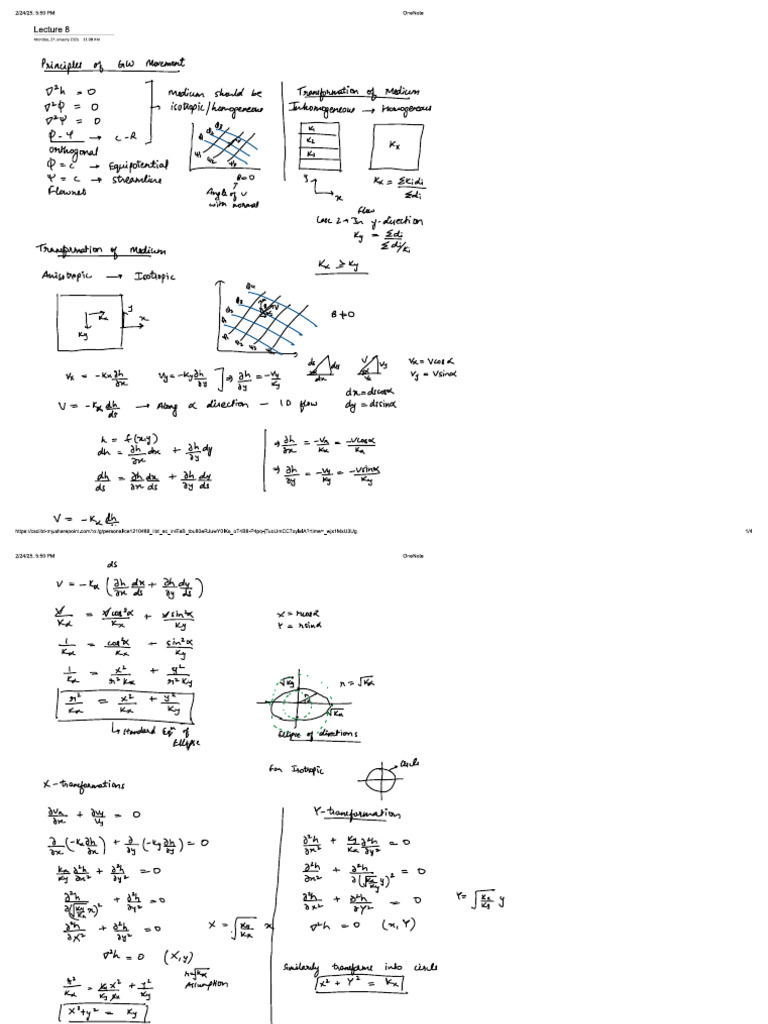 2/24/25, 5:50 PM
OneNote
Lecture 8
Principles of GW Movement
∇²h = 0
∇²Φ = 0
∇²Ψ = 0
Φ - Ψ → C-R
Orthogonal
Φ = c → Equipotential
Ψ = c → streamline
Flownet
medium should be
isotropic/homogeneous
θ=0
Angle of v
with normal
Transformation of Medium
Inhomogeneous → Homogeneous
K₁
K₂
K₃
Kx
y
x
Kx = ΣKidi / Σdi
Flow
Case 2 → In y-direction
Ky = Σdi / Σdi/Ki
Kx ≥ Ky
Transformation of Medium
Anisotropic → Isotropic
Kx
Ky
y
x
θ ≠ 0
Vx = -Kx ∂h/∂x
Vy = -Ky ∂h/∂y ] ⇒ ∂h/∂y = -Vy/Ky
Vx = Vcosα
Vy = Vsinα
dx = dscosα
dy = dssinα
V = -Kα dh/ds → Along α direction - 1D flow
h = f(x,y)
dh = ∂h/∂x dx + ∂h/∂y dy
dh/ds = ∂h/∂x dx/ds + ∂h/∂y dy/ds
⇒ ∂h/∂x = -Vx/Kx = -Vcosα/Kx
⇒ ∂h/∂y = -Vy/Ky = -Vsinα/Ky
V = -Kα dh/
1/4
2/24/25, 5:50 PM
OneNote
ds
V = -Kα (∂h/∂x dx/ds + ∂h/∂y dy/ds)
V/Kα = Vcos²α/Kx + Vsin²α/Ky
1/Kα = cos²α/Kx + sin²α/Ky
1/Kα = x²/r²Kx + y²/r²Ky
r²/Kα = x²/Kx + y²/Ky
↳ Standard Eqⁿ of
Ellipse
X = rcosα
Y = rsinα
√Ky
r = √Kα
√Kx
Ellipse of directions
For Isotropic
circle
X-transformations
∂Vx/∂x + ∂Vy/Vy = 0
∂/∂x (-Kx ∂h/∂x) + ∂/∂y (-Ky ∂h/∂y) = 0
Kx/Ky ∂²h/∂x² + ∂²h/∂y² = 0
∂²h/∂(√Ky/Kx x)² + ∂²h/∂y² = 0
∂²h/∂X² + ∂²h/∂y² = 0
X = √Ky/Kx x
∇²h = 0 (X,y)
r=√Kα
Assumption
X²+y² = Ky
Y-transformation
∂²h/∂x² + Ky/Kx ∂²h/∂y² = 0
∂²h/∂x² + ∂²h/∂(√Kx/Ky y)² = 0
∂²h/∂x² + ∂²h/∂Y² = 0
Y = √Kx/Ky y
∇²h = 0 (x,Y)
Similarly transforms into circle
x² + Y² = Kx